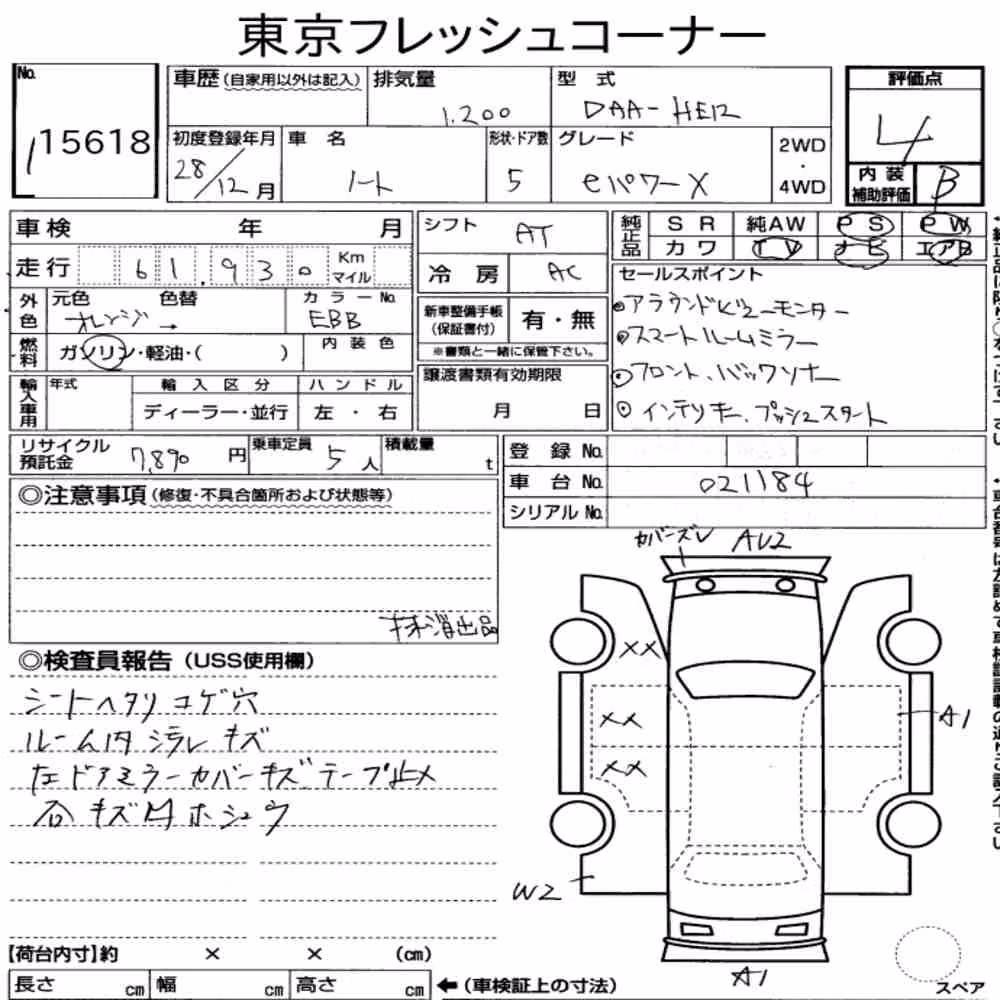 東京フレッシュコーナー
No.
15618
車歴(自家用以外は記入)
排気量
1.200
型 式
DAA-HE12
評価点
4
初度登録年月
28/12月
車 名
ノート
形状・ドア数
5
グレード
eパワーX
2WD
・
4WD
内装
補助評価
B
車検 年 月
走行 61.930 Km
マイル
シフト
AT
冷房
AC
純正品
SR 純AW PS PW
カワ TV ナビ エアB
外色
元色 色替
オレンジ →
カラーNo.
EBB
新車整備手帳
(保証書付)
有・無
※書類と一緒に保管下さい。
セールスポイント
アラウンドビューモニター
スマートルームミラー
フロント、バックソナー
インテリキー、プッシュスタート
燃料
ガソリン・軽油・( )
内装色
輸入車用
年式
輸入区分
ハンドル
ディーラー・並行
左・右
譲渡書類有効期限
月 日
リサイクル
預託金
7,890円
乗車定員
5人
積載量
t
登 録 No.
車 台 No. 021184
シリアル No.
◎注意事項(修復・不具合箇所および状態等)
抹消出品
カバーズレ AU2
◎検査員報告(USS使用欄)
シートヘタリ コゲ穴
ルーム内 汚レ キズ
左ドアミラーカバーキズテープ止メ
各キズ凹ホシュウ
XX
XX
XX
A1
W2
A1
【荷台内寸】約 × × (cm)
長さ cm 幅 cm 高さ cm
←(車検証上の寸法)
スペア